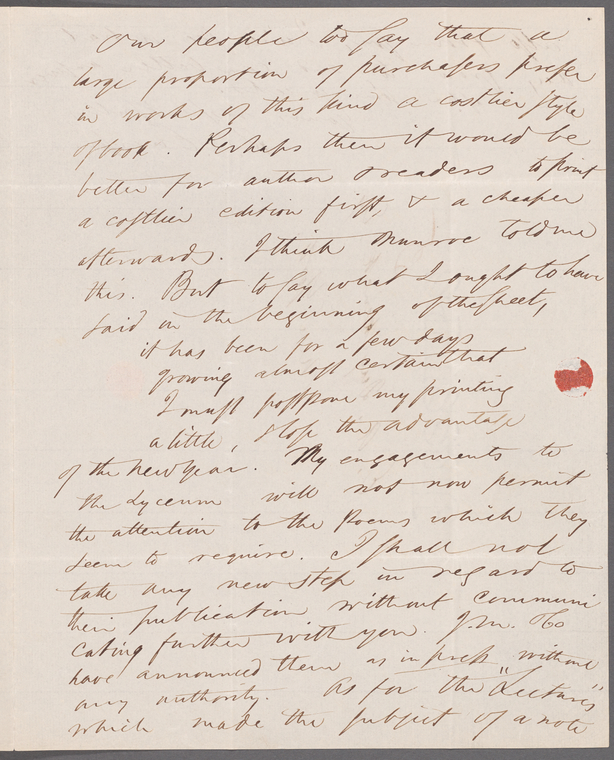 Our people too say that a
large proportion of purchasers prefer
in works of this kind a costlier style
of book. Perhaps then it would be
better for author & readers to print
a costlier edition first, & a cheaper
afterwards. I think Munroe told me
this. But to say what I ought to have
said in the beginning of the sheet,
it has been for a few days
growing almost certain that
I must postpone my printing
a little, & lose the advantage
of the New Year. My engagements to
the Lyceum will not now permit
the attention to the Poems which they
seem to require. I shall not
take any new step in regard to
their publication without communi
cating further with you. J. M. & Co
have announced them as in press without
any authority. As for the "Lectures"
which made the subject of a note